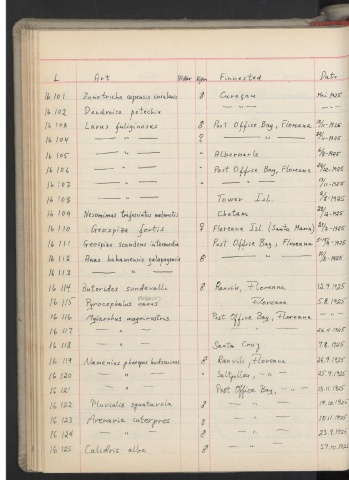 L Art Alder Kjønn Finnested Dato
16101 Zonotrichia capensis insularis ♂ Curaçau Mai 1925
16102 Dendroica petechia — " — — " —
16103 Larus fuliginosus ♂ Post Office Bay, Floreana 1925
16104 — " — ♀ — " — 1925
16105 — " — " Albemarle 1925
16106 — " — " Post Office Bay, Floreana 1925
16107 — " — " — " — 1925
16108 — " — Tower Isl. 1925
16109 Nesomimus trifasciatus melanotis Chatam 1925
16110 Geospiza fortis ♂ Floreana Isl (Santa Maria) 1925
16111 Geospiza scandens intermedia Post Office Bay, Floreana 1925
16112 Anas bahamensis galapagensis ♂ — " — 1925
16113 — " —
16114 Butorides sundevalli ♂ Ranvik, Floreana 12.9.1925
16115 Pyrocephalus nanus Floreana 5.8.1925
16116 Myiarchus magnirostris Post Office Bay, Floreana — " —
16117 — " — — " — 1925
16118 — " — Santa Cruz 7.8.1925
16119 Numenius phaeopus hudsonicus ♂ Ranvik, Floreana 26.9.1925
16120 — " — " Saltpollen, — " — 25.9.1925
16121 — " — Post Office Bay, — " — 1925
16122 Pluvialis squatarola ♂ — " — 19.10.1925
16123 Arenaria interpres ♂ — " — 10.11.1925
16124 — " — ♂ — " — 23.9.1925
16125 Calidris alba ♂ — " — 27.10.1925